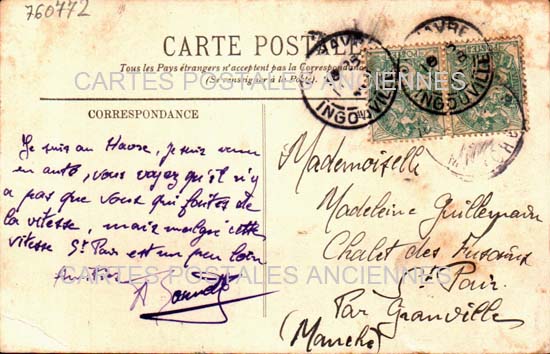 760772
CARTE POSTALE
Tous les Pays étrangers n'acceptent pas la Correspondance
(Se renseigner à la Poste).
CARTES POSTALES ANCIENNES
CORRESPONDANCE
HAVRE
INGOUVILLE
HAVRE
INGOUVILLE
Je suis au Havre, je suis venu
en auto, vous voyez qu'il n'y
a pas que vous qui faites de
la vitesse, mais malgré cette
vitesse St Pair est un peu loin
Mademoiselle
Madeleine Guillemain
Chalet des Fusains
St Pair
Par Granville
(Manche)
CARTES POSTALES ANCIENNES